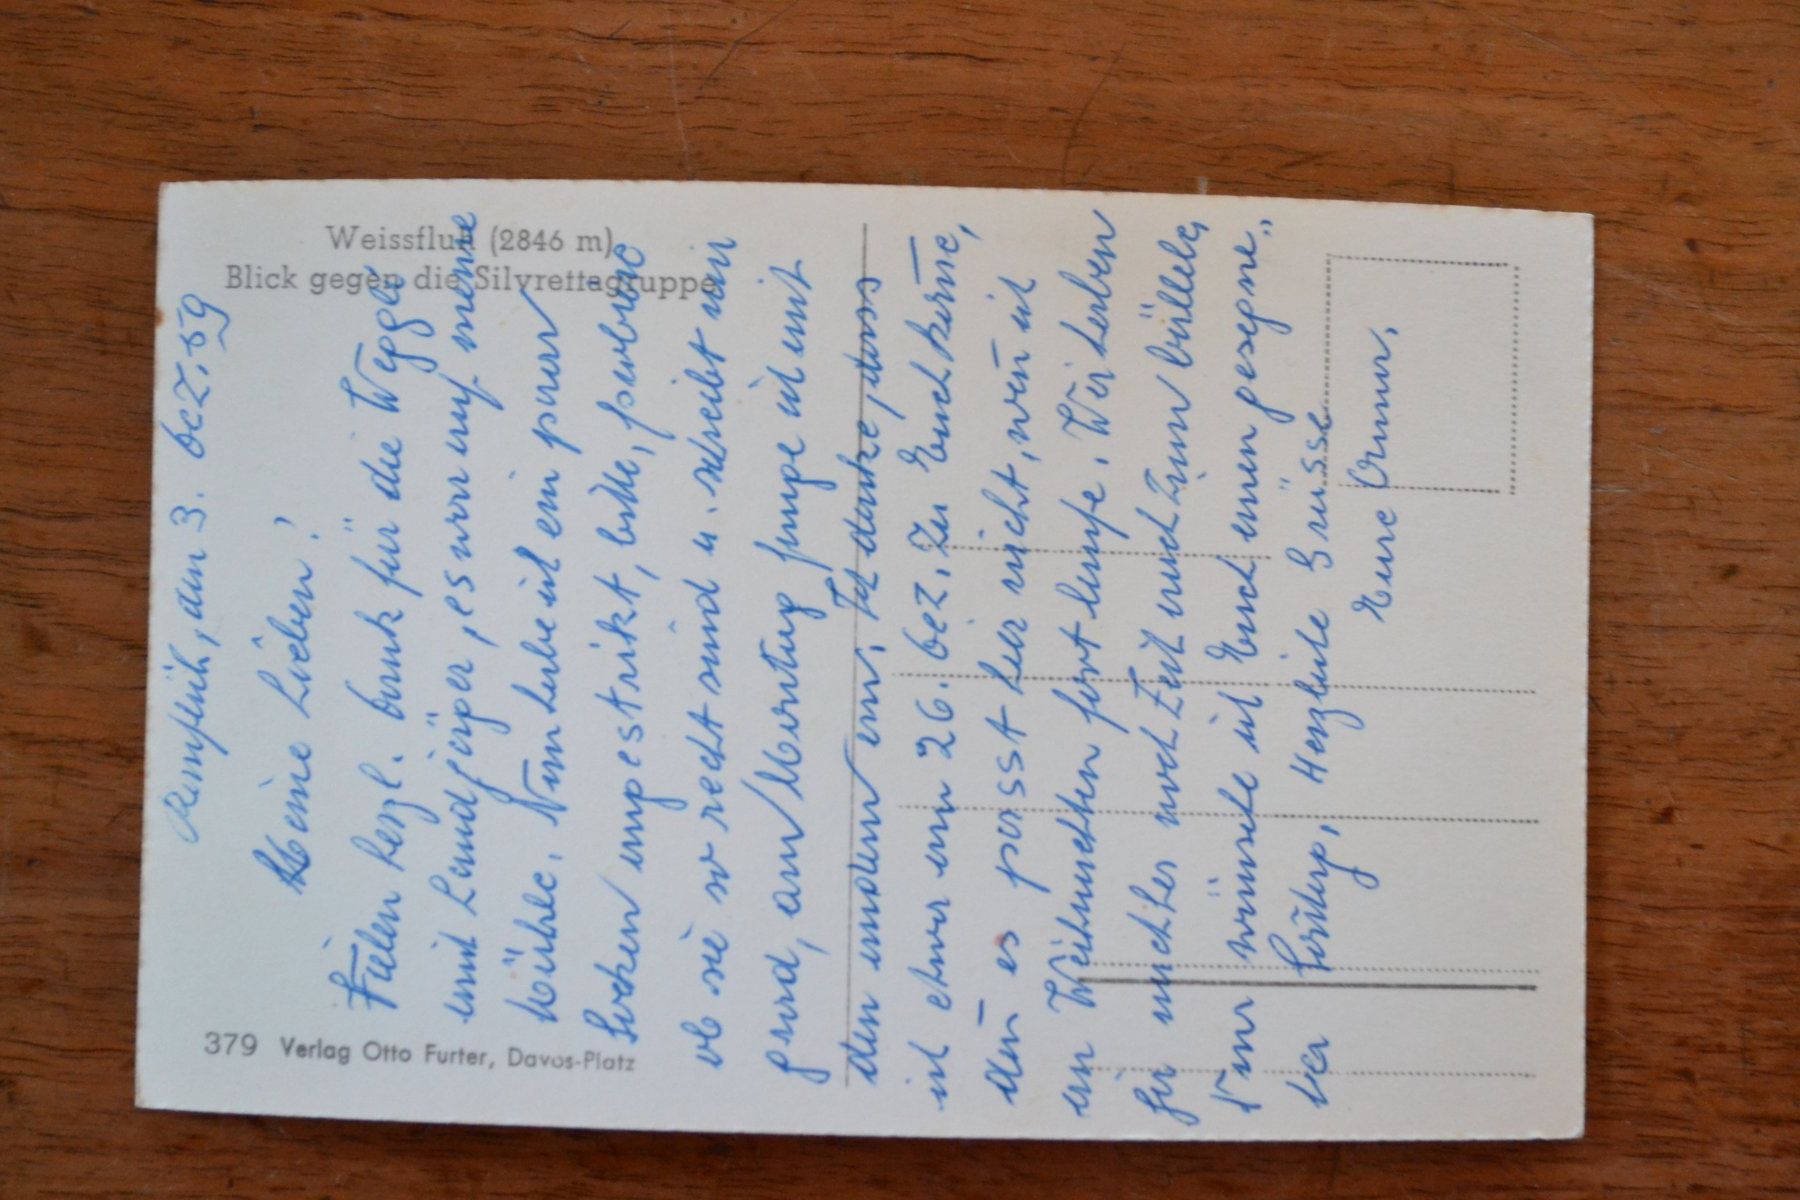 Weissfluh (2846 m)
Blick gegen die Silvrettagruppe
379 Verlag Otto Furter, Davos-Platz
den 3. Dez. 59
Meine Lieben!
Vielen herzl. Dank für die Weggli
und Landjäger, es war auf meine
Mühle. Nun habe ich ein paar
Socken angestrikt, bitte, probiere
ob sie so recht sind u. schreibt mir
grad, am Montag fange ich mit
den andern an. Ich denke, dass
ich etwa am 26. Dez. zu Euch komme,
denn es passt hier nicht, wenn ich
an Weihnachten fort laufe. Wir haben
ja nachher noch Zeit
Nun wünsche ich Euch einen gesegne"
ten Herzliche Grüsse
Eure